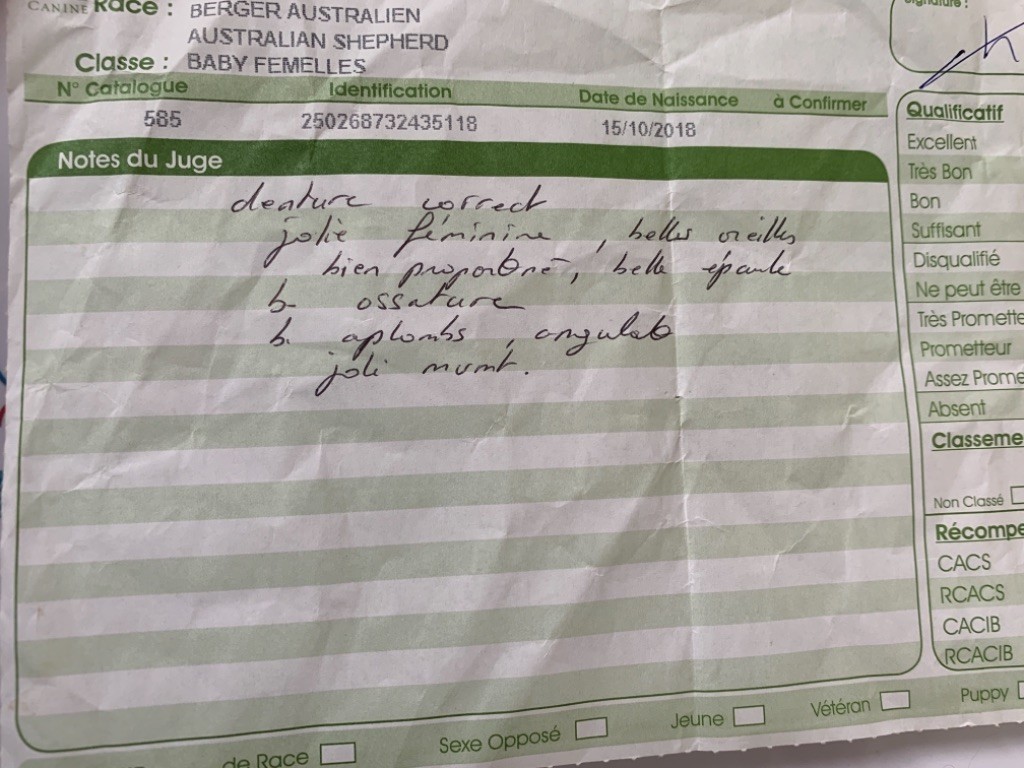 CANINE Race : BERGER AUSTRALIEN
AUSTRALIAN SHEPHERD
Classe : BABY FEMELLES
N° Catalogue Identification Date de Naissance à Confirmer
585 250268732435118 15/10/2018
Notes du Juge
denture correct
jolie féminine, belles oreilles
bien proportionné, belle épaule
b. ossature
b. aplombs, angulat
joli mvmt.
Signature :
Qualificatif
Excellent
Très Bon
Bon
Suffisant
Disqualifié
Ne peut être
Très Promette
Prometteur
Assez Prome
Absent
Classeme
Non Classé
Récompe
CACS
RCACS
CACIB
RCACIB
de Race Sexe Opposé Jeune Vétéran Puppy